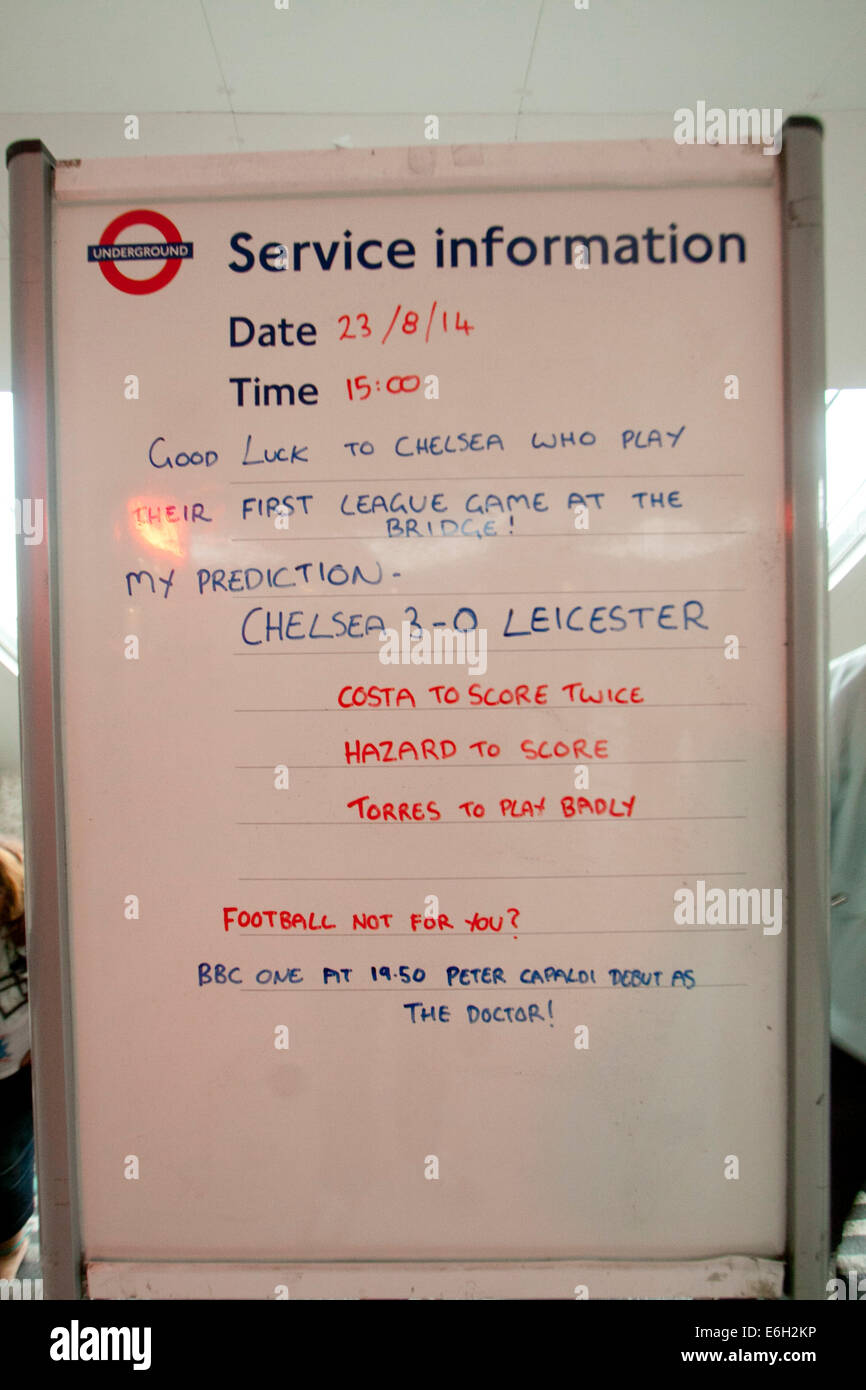 UNDERGROUND
Service information
Date 23/8/14
Time 15:00
GOOD LUCK TO CHELSEA WHO PLAY
THEIR FIRST LEAGUE GAME AT THE
BRIDGE!
MY PREDICTION-
CHELSEA 3-0 LEICESTER
COSTA TO SCORE TWICE
HAZARD TO SCORE
TORRES TO PLAY BADLY
FOOTBALL NOT FOR YOU?
BBC ONE AT 19.50 PETER CAPALDI DEBUT AS
THE DOCTOR!
alamy
a alamy stock photo
E6H2KP
www.alamy.com